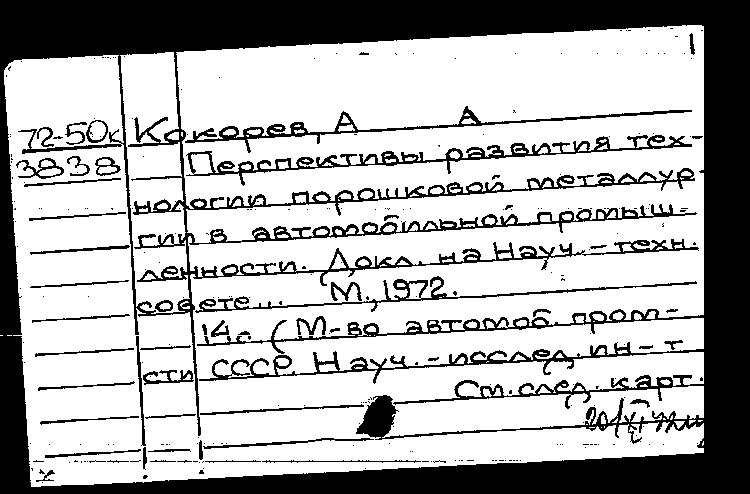 1
72-50к Кокорев, А А
3838 Перспективы развития тех-
нологии порошковой металлур-
гии в автомобильной промыш-
ленности. Докл. на Науч.-техн.
совете... М., 1972.
14с. (М-во автомоб. пром-
сти СССР. Науч.-исслед. ин-т
См. след. карт.